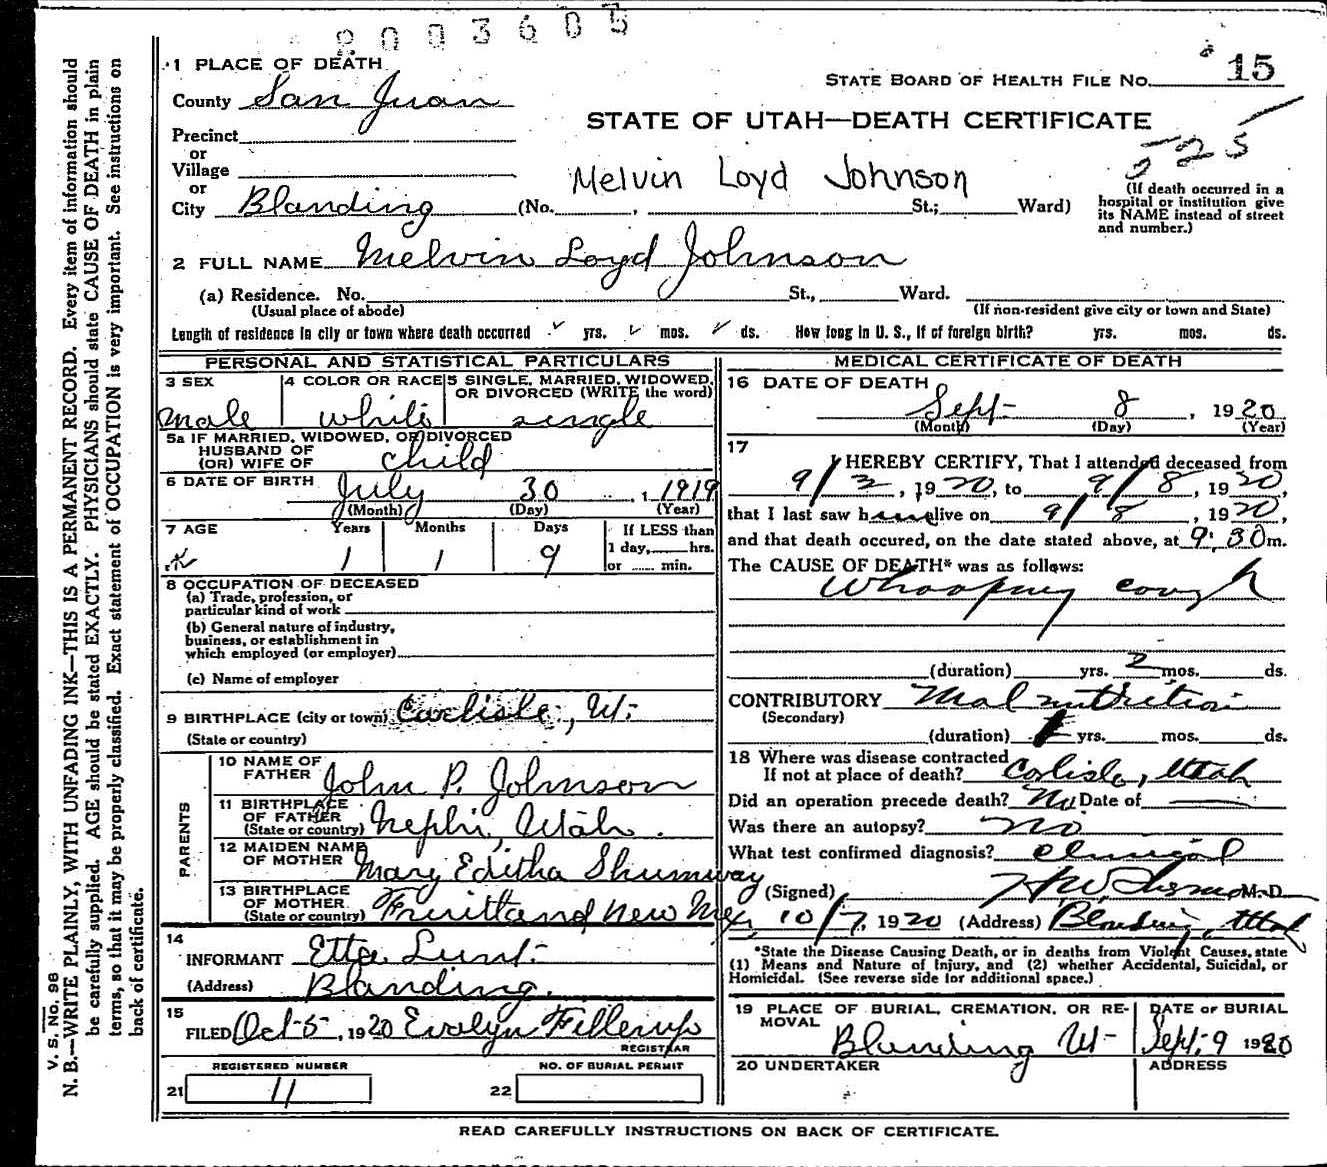 2003605
1 PLACE OF DEATH
STATE BOARD OF HEALTH FILE NO. 15
County San Juan
STATE OF UTAH—DEATH CERTIFICATE
525
Precinct
or
Village
or
City Blanding (No. , St.; Ward)
Melvin Loyd Johnson
(If death occurred in a
hospital or institution give
its NAME instead of street
and number.)
2 FULL NAME Melvin Loyd Johnson
(a) Residence. No. St., Ward.
(Usual place of abode) (If non-resident give city or town and State)
Length of residence in city or town where death occurred yrs. mos. ds. How long in U. S., if of foreign birth? yrs. mos. ds.
PERSONAL AND STATISTICAL PARTICULARS
3 SEX 4 COLOR OR RACE 5 SINGLE, MARRIED, WIDOWED,
OR DIVORCED (WRITE the word)
male white single
5a IF MARRIED, WIDOWED, OR DIVORCED
HUSBAND OF
(OR) WIFE OF child
6 DATE OF BIRTH July 30, 1919
(Month) (Day) (Year)
7 AGE Years Months Days If LESS than
1 day, hrs.
or min.
1 1 9
8 OCCUPATION OF DECEASED
(a) Trade, profession, or
particular kind of work
(b) General nature of industry,
business, or establishment in
which employed (or employer)
(c) Name of employer
9 BIRTHPLACE (city or town) Carlisle, Ut.
(State or country)
PARENTS
10 NAME OF
FATHER John P. Johnson
11 BIRTHPLACE
OF FATHER
(State or country) Nephi, Utah.
12 MAIDEN NAME
OF MOTHER Mary Editha Shumway
13 BIRTHPLACE
OF MOTHER
(State or country) Fruitland New Mex,
14
INFORMANT Etta Lunt.
(Address) Blanding.
15
FILED Oct-5-, 1920 Evelyn Fillerup
REGISTRAR
REGISTERED NUMBER NO. OF BURIAL PERMIT
21 11 22
MEDICAL CERTIFICATE OF DEATH
16 DATE OF DEATH
Sept- 8, 1920
(Month) (Day) (Year)
17
I HEREBY CERTIFY, That I attended deceased from
9/2, 1920, to 9/8, 1920,
that I last saw him alive on 9/8, 1920,
and that death occured, on the date stated above, at 9:30 m.
The CAUSE OF DEATH* was as follows:
Whooping cough
(duration) yrs. 2 mos. ds.
CONTRIBUTORY Malnutrition
(Secondary)
(duration) yrs. mos. ds.
18 Where was disease contracted
If not at place of death? Carlisle, Utah
Did an operation precede death? No Date of
Was there an autopsy? No
What test confirmed diagnosis? Clinical
(Signed) M. D.
10/7, 1920 (Address) Blanding, Utah
*State the Disease Causing Death, or in deaths from Violent Causes, state
(1) Means and Nature of Injury, and (2) whether Accidental, Suicidal, or
Homicidal. (See reverse side for additional space.)
19 PLACE OF BURIAL, CREMATION, OR RE-
MOVAL
DATE OF BURIAL
Blanding Ut- Sept. 9 1920
20 UNDERTAKER ADDRESS
READ CAREFULLY INSTRUCTIONS ON BACK OF CERTIFICATE.
V. S. No. 98
N. B.—WRITE PLAINLY, WITH UNFADING INK—THIS IS A PERMANENT RECORD. Every item of information should
be carefully supplied. AGE should be stated EXACTLY. PHYSICIANS should state CAUSE OF DEATH in plain
terms, so that it may be properly classified. Exact statement of OCCUPATION is very important. See instructions on
back of certificate.